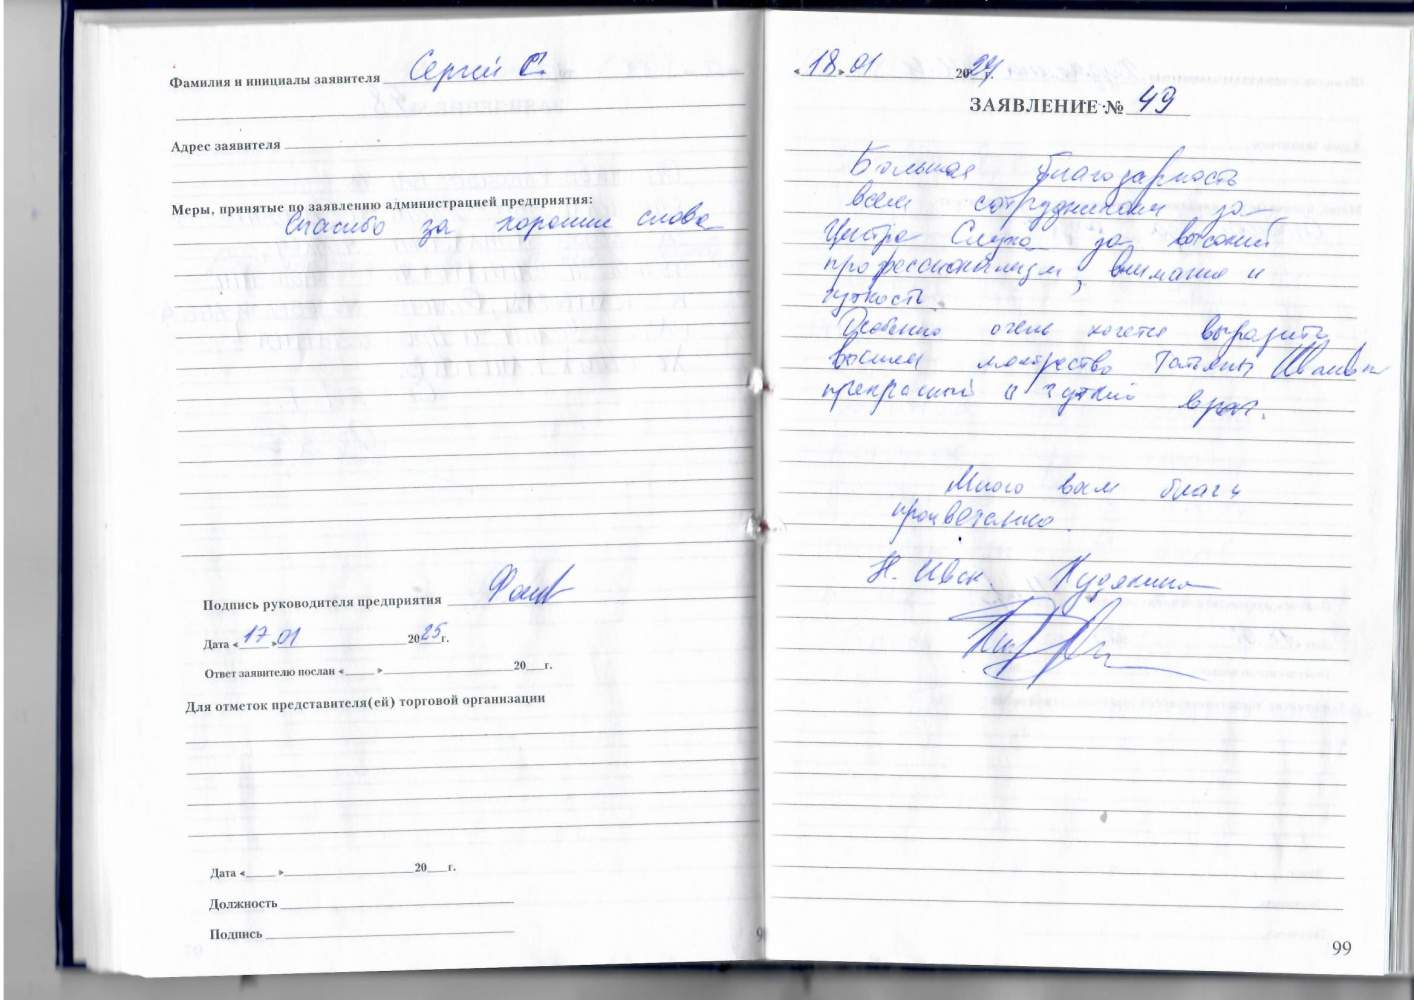 Фамилия и инициалы заявителя Сергей С.
Адрес заявителя
Меры, принятые по заявлению администрацией предприятия:
Спасибо за хорошие слова
Подпись руководителя предприятия
Дата «17»01 2025г.
Ответ заявителю послан «____» 20__г.
Для отметок представителя(ей) торговой организации
Дата «____» 20__г.
Должность
Подпись
«18»01 2024г.
ЗАЯВЛЕНИЕ № 49
Большая благодарность
всем сотрудникам за
Центра Слуха за высокий
профессионализм, внимание и
чуткость
Особенно очень хочется выразить
высшее мастерство Татьяны Ивановн
прекрасный и чуткий врач.
Много вам благ и
процветания.
Н. Ивск. Кудякина
99